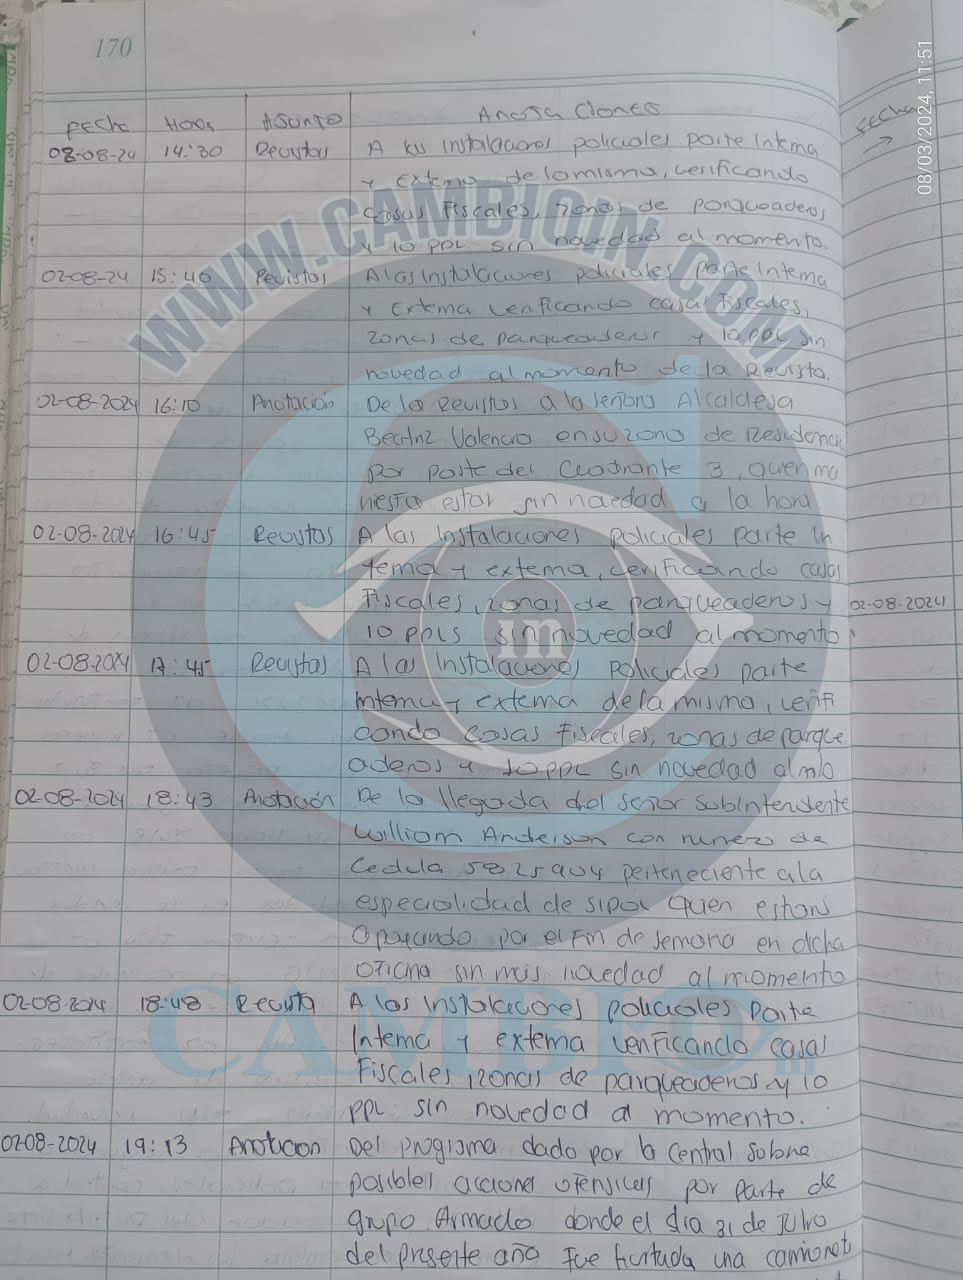 170
08/03/2024, 11:51
Fecha Hora Asunto Anotaciones Fecha
02-08-24 14:30 Revistas A las Instalaciones policiales parte Interna
y externa de la misma, verificando
casas Fiscales, zonas de parqueaderos
y 10 PPL sin novedad al momento.
02-08-24 15:40 Revistas A las Instalaciones policiales parte Interna
y Externa verificando casas Fiscales,
zonas de parqueaderos y la PPL sin
novedad al momento de la Revista.
02-08-2024 16:10 Anotación De la Revistas a la señora Alcaldesa
Beatriz Valencia en su zona de Residencia
por parte del Cuadrante 3, quien ma
niesta estar sin novedad a la hora
02-08-2024 16:45 Revistas A las Instalaciones policiales parte in
terna y externa, verificando casas
Fiscales, zonas de parqueaderos y 02-08-2024
10 PPLS sin novedad al momento.
02-08-2024 17:45 Revistas A las Instalaciones Policiales parte
interna y externa de la misma, verifi
cando casas Fiscales, zonas de parque
aderos y 10 PPL sin novedad al m/o
02-08-2024 18:43 Anotación De la llegada del señor subIntendente
William Anderson con numero de
Cedula 5825904 perteneciente a la
especialidad de SIPOL quien estara
Apoyando por el Fin de semana en dicha
oficina sin mas novedad al momento
02-08-2024 18:48 Revista A las Instalaciones policiales Parte
Interna y externa verificando casas
Fiscales, zonas de parqueaderos y 10
PPL sin novedad al momento.
02-08-2024 19:13 Anotacion Del programa dado por la central sobre
posibles acciones ofensivas por parte de
grupo Armado donde el dia 31 de Julio
del presente año Fue hurtada una camionet
WWW.CAMBIOIN.COM
in
CAMBIO in